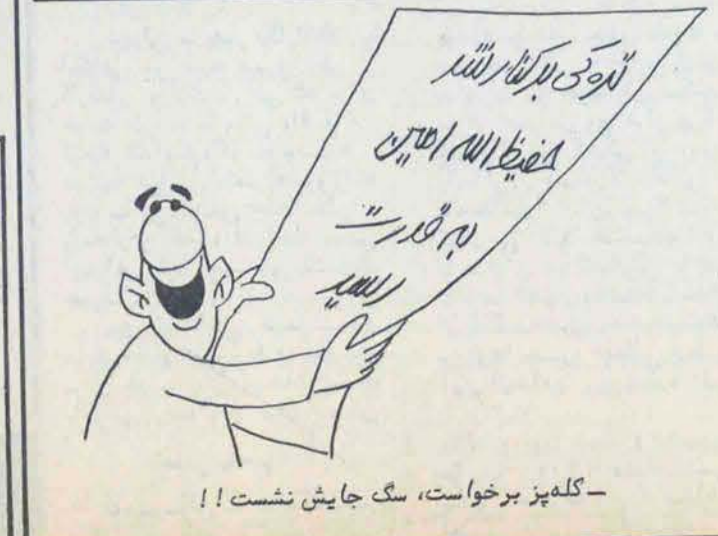 تره‌کی برکنار شد
حفیظ‌الله امین
به قدرت
رسید
ـ کله‌پز برخواست، سگ جایش نشست!!